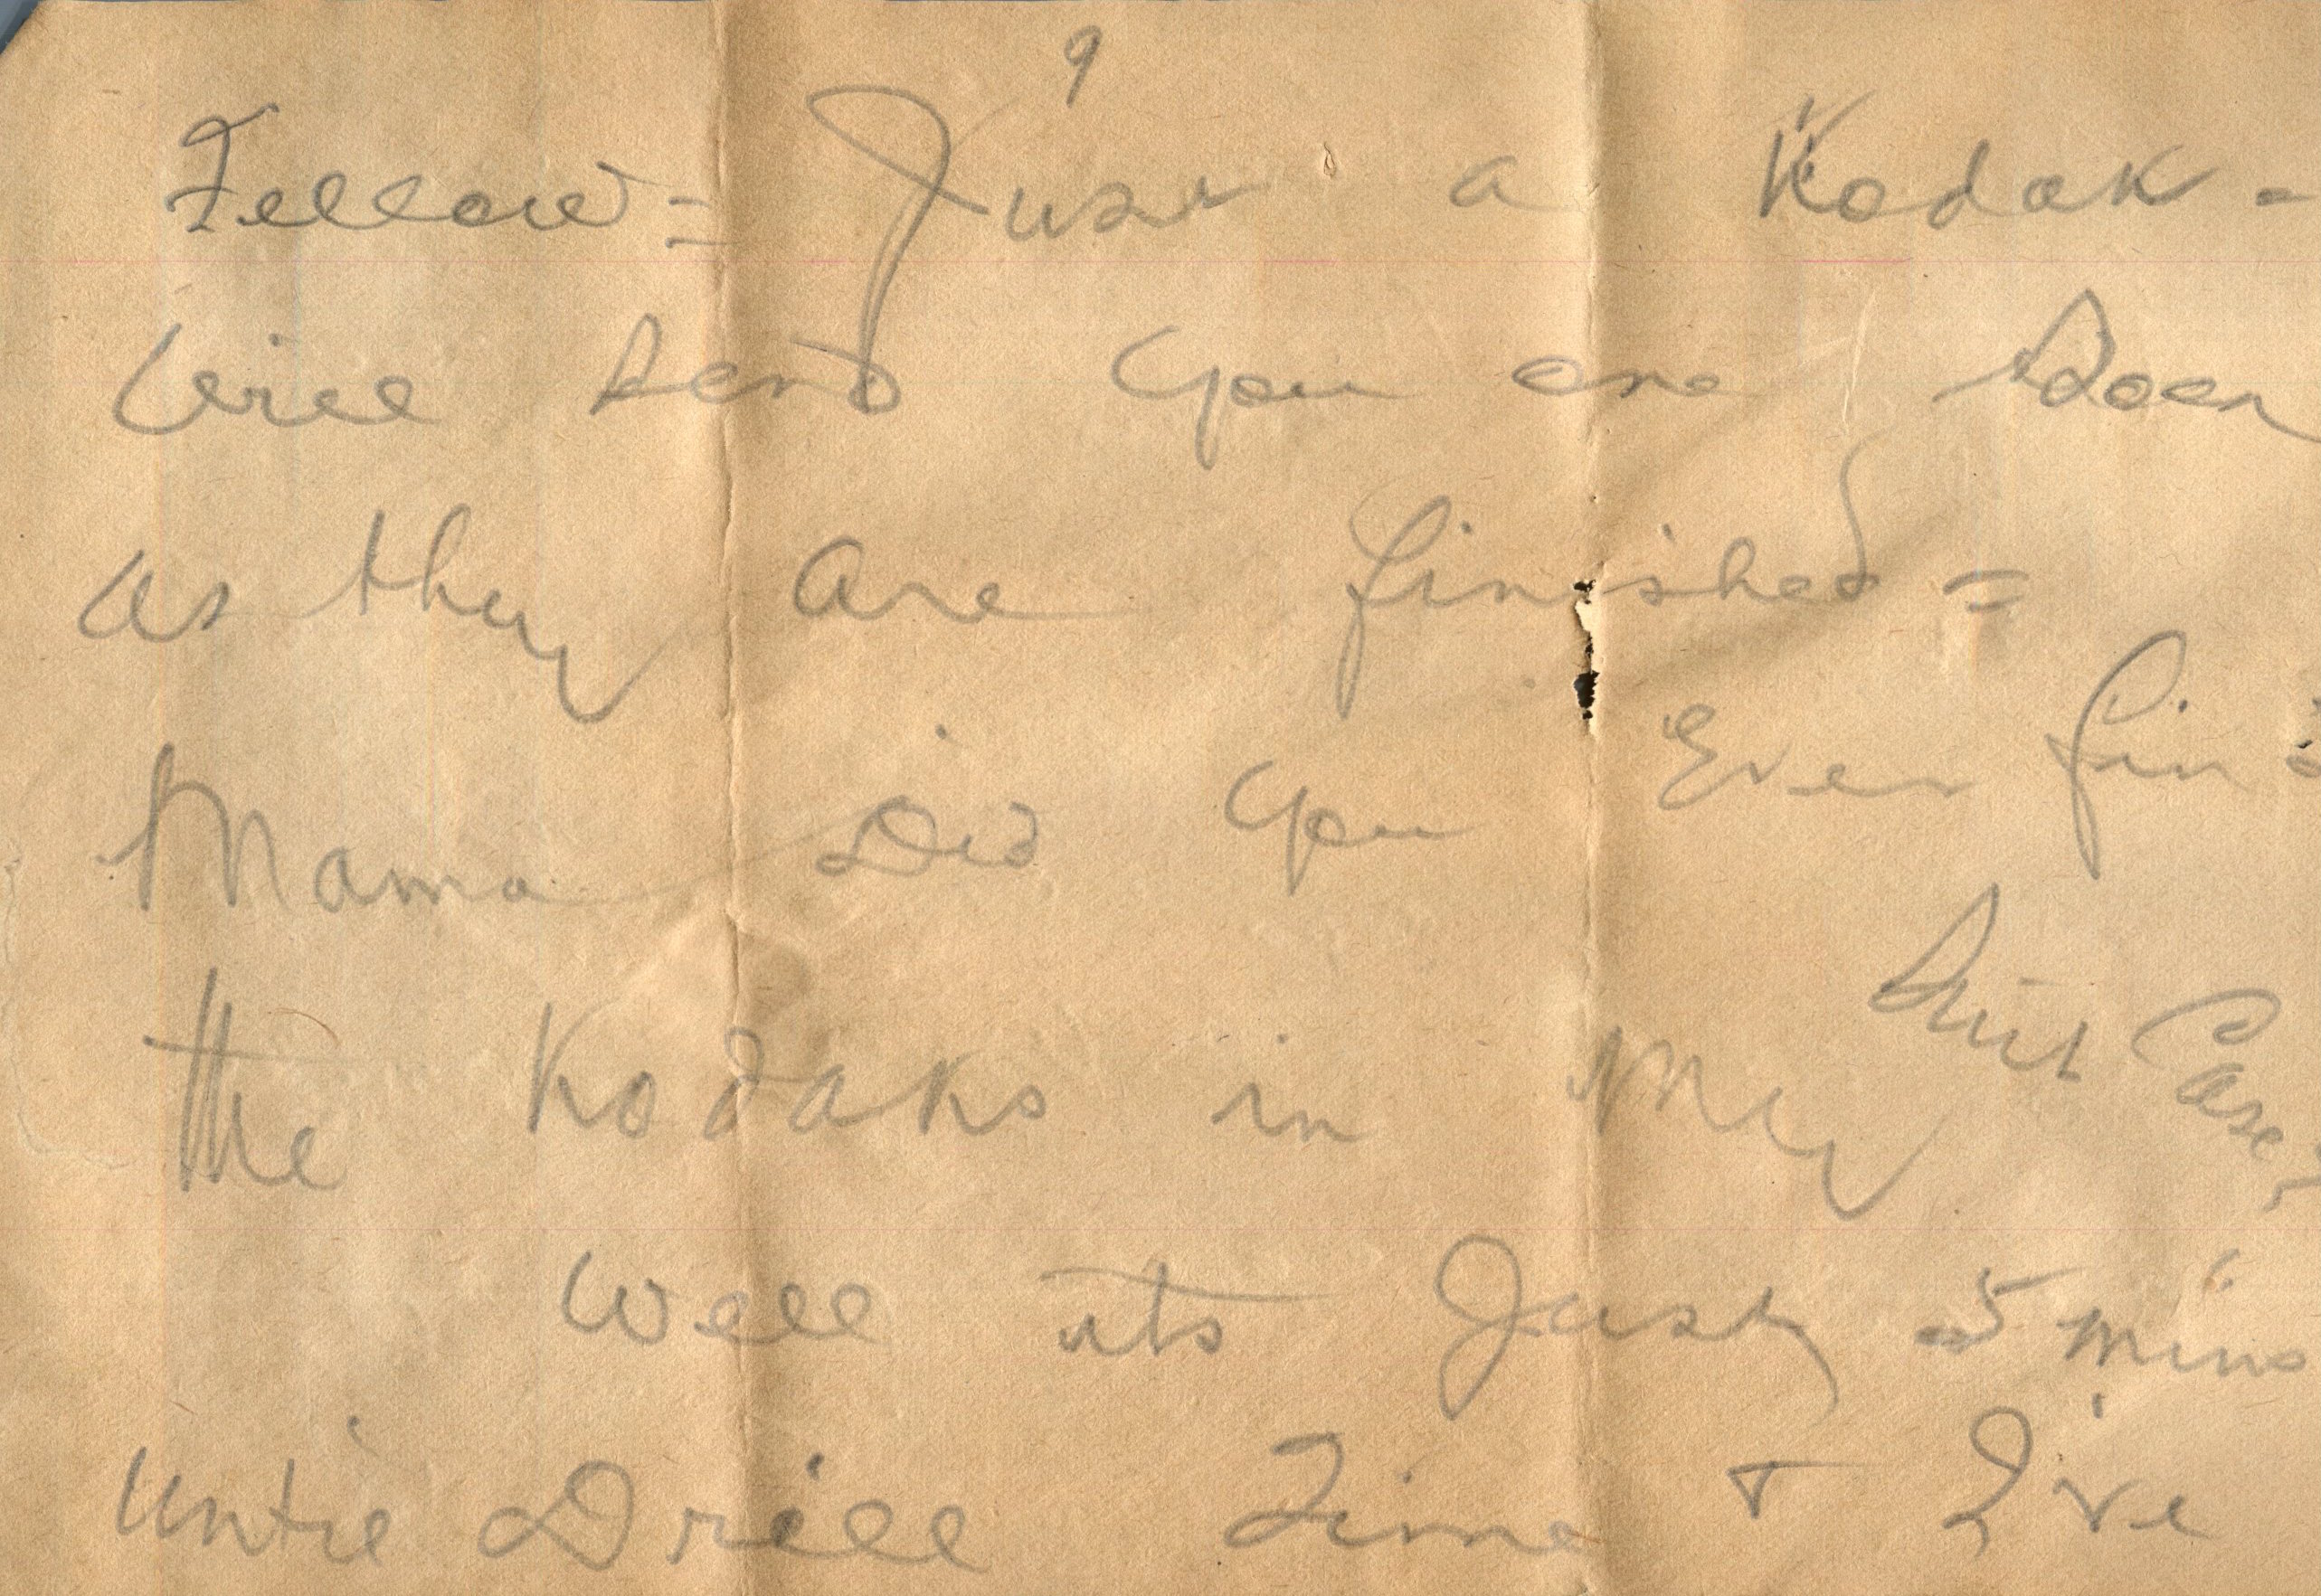 9
Fellow = Just a Kodak -
Will send you one soon
as they are finished =
Mama Did you Ever find
the Kodaks in My Suit Case -
Well its Just 5 mins
until Drill Time + I've